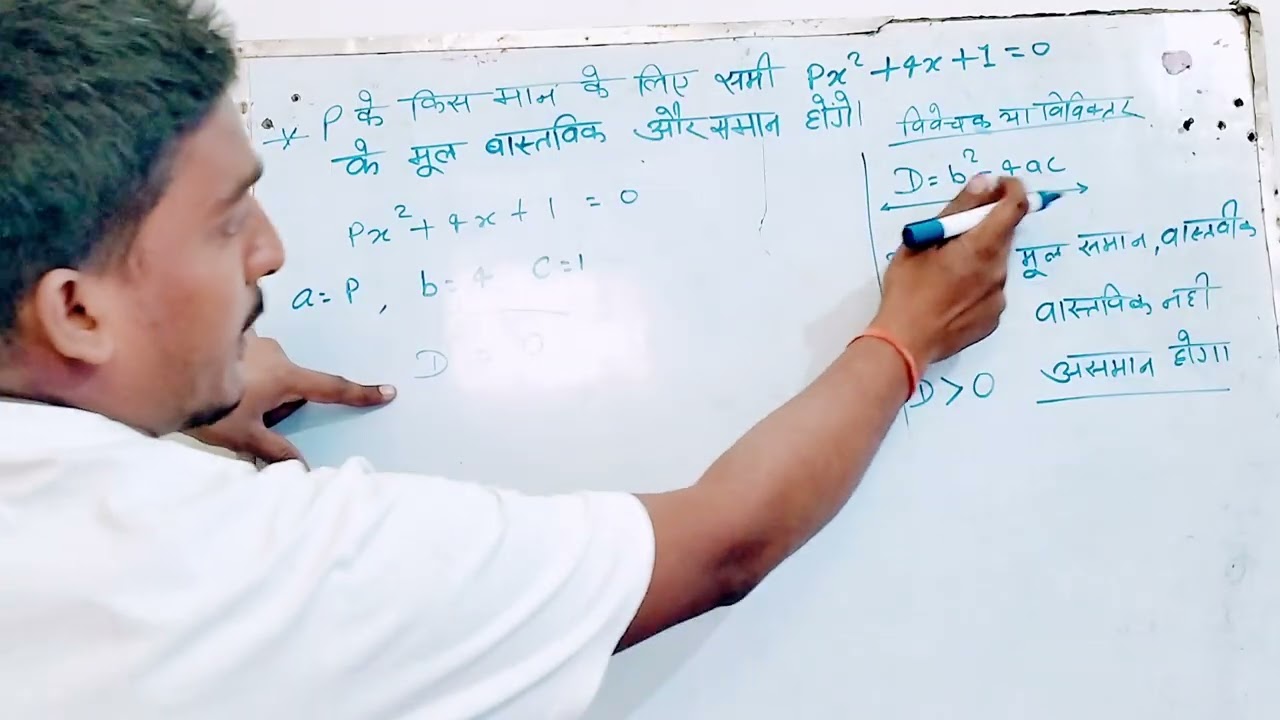 * P के किस मान के लिए समी Px² + 4x + 1 = 0
के मूल वास्तविक और समान होंगे।
Px² + 4x + 1 = 0
a = P, b = 4 c = 1
D = 0
विवेचक या विविक्तर
D = b² - 4ac
मूल समान, वास्तवीक
वास्तविक नही
D > 0 असमान होगा।